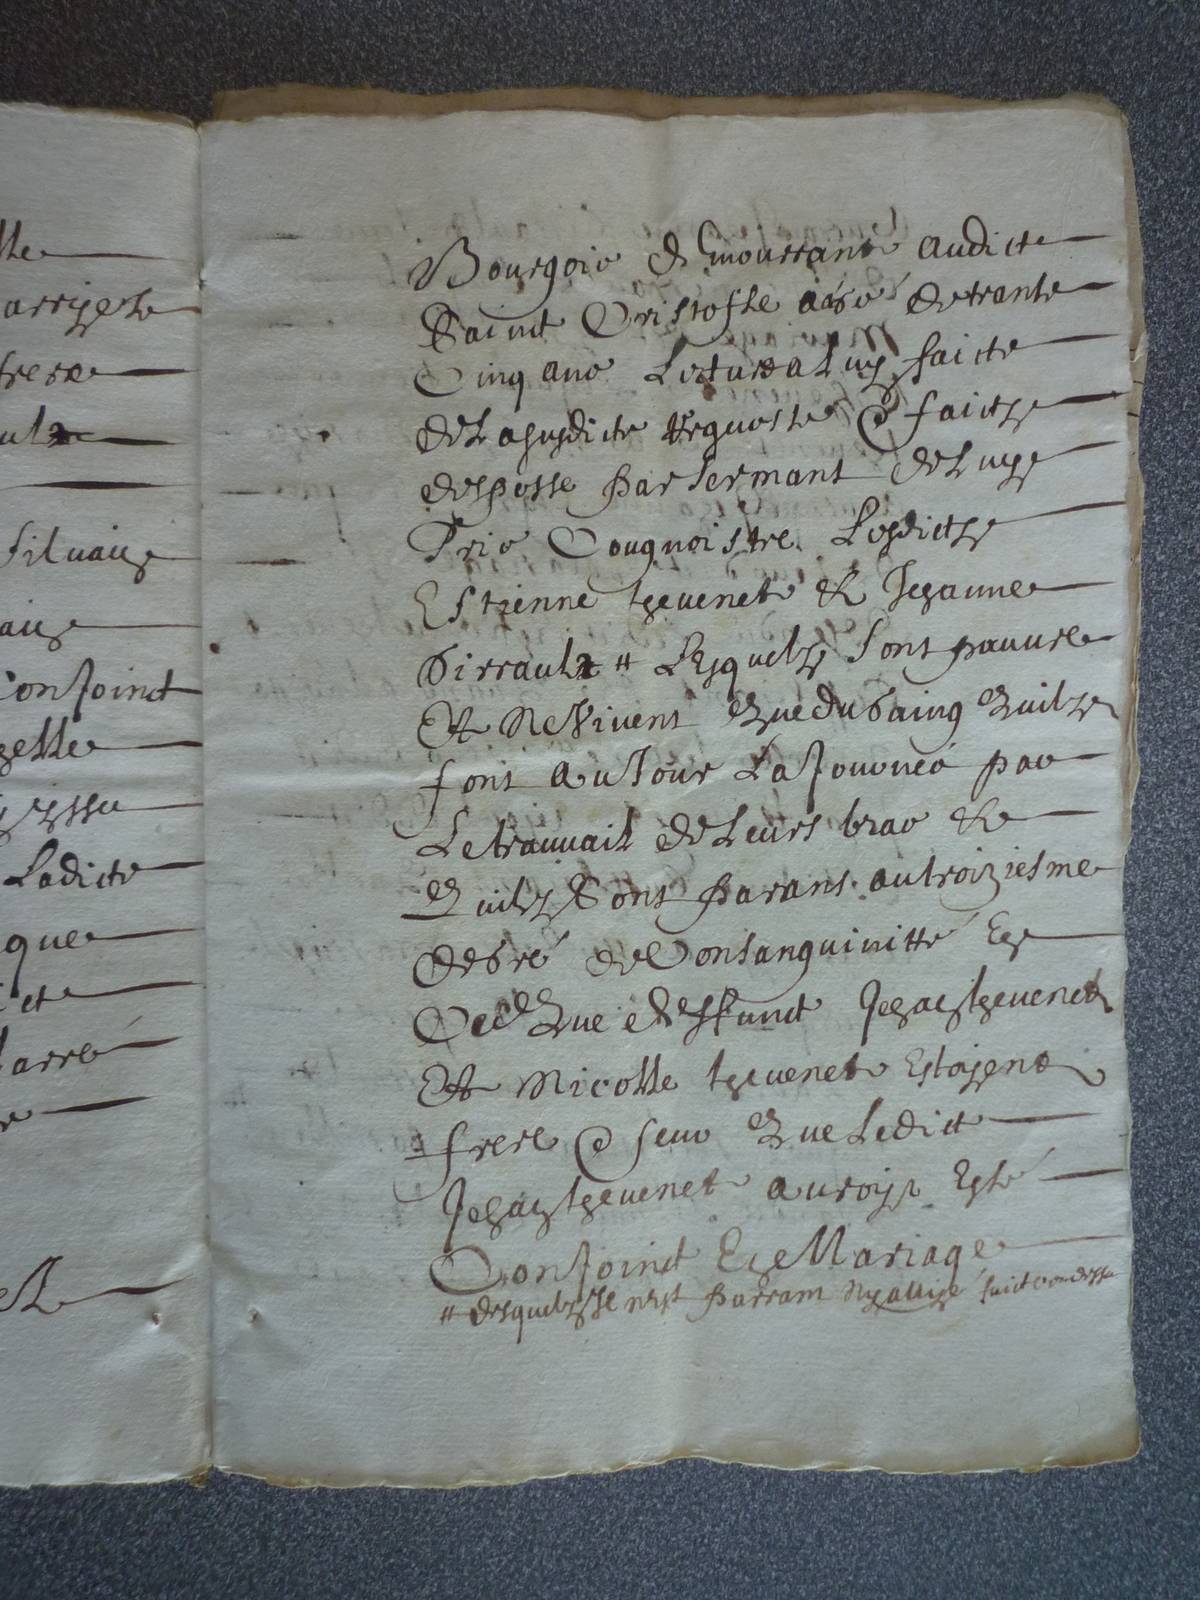 lle
arrigete
frere
ault
silvaig
aig
Conjoinct
gelle
yssu
Ladicte
que
et
arré
et
Bourgois demourrant audict
Saint Cristofle aagé de trante
Cinq ans Lecture a Luy faicte
de La susdicte Requeste & faictz
despose par serment de Luy
Pris Cougnoistre Lesdictz
Estienne thevenet et Jehanne
Girrault " Lesquelz sont pauvre
Et Ne Vivent que du Gaing quilz
font au Jour La Journeé par
Le travvail de Leurs bras et
quilz Sont parans au troiziesme
degré de Consanguinitté En
Ce que deffunct Jehan thevenet
Et Nicolle thevenet Estoyent
frere & seur que Ledict
Jehan thevenet auroyt Esté
Conjoinct En Mariage
" desquelz Il nest parram Ny allyé faict comdessu